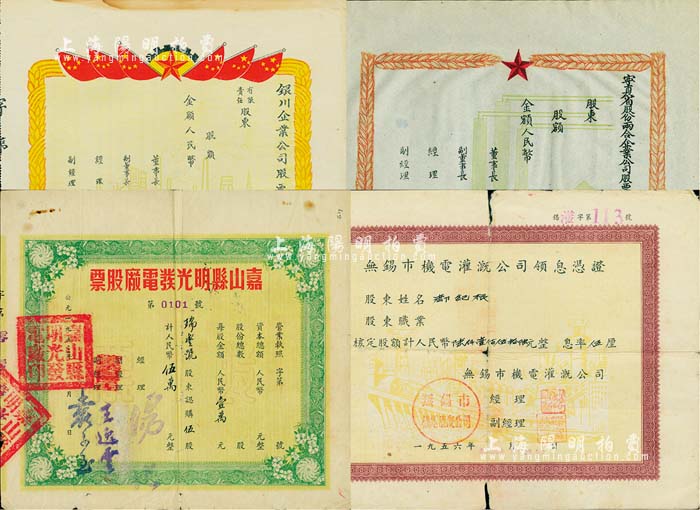 上海陽明拍賣
www.yangmingauction.com
銀川企業公司股票
有限
責任
股東
股額
金額人民幣
董事長
副董事長
經理
副經理
上海陽明拍賣
www.yangmingauction.com
寧夏省股份兩合企業公司股票
股東
股額
金額人民幣
董事長
副董事長
經理
副經理
票股廠電發光明縣山嘉
第 0101 號
營業執照 字第 號
資本總額 人民幣 元整
股份總數 股
每股金額 人民幣壹萬元
股東認購伍股
計人民幣伍萬元整
經理
公元
月
日
上海陽明拍賣
www.yangmingauction.com
字第113號
無錫市機電灌溉公司領息憑證
股東姓名
股東職業
核定股額計人民幣
元整 息率伍厘
無錫市機電灌溉公司
經理
副經理
一九五六年 月 日
上海陽明拍賣
www.yangmingauction.com